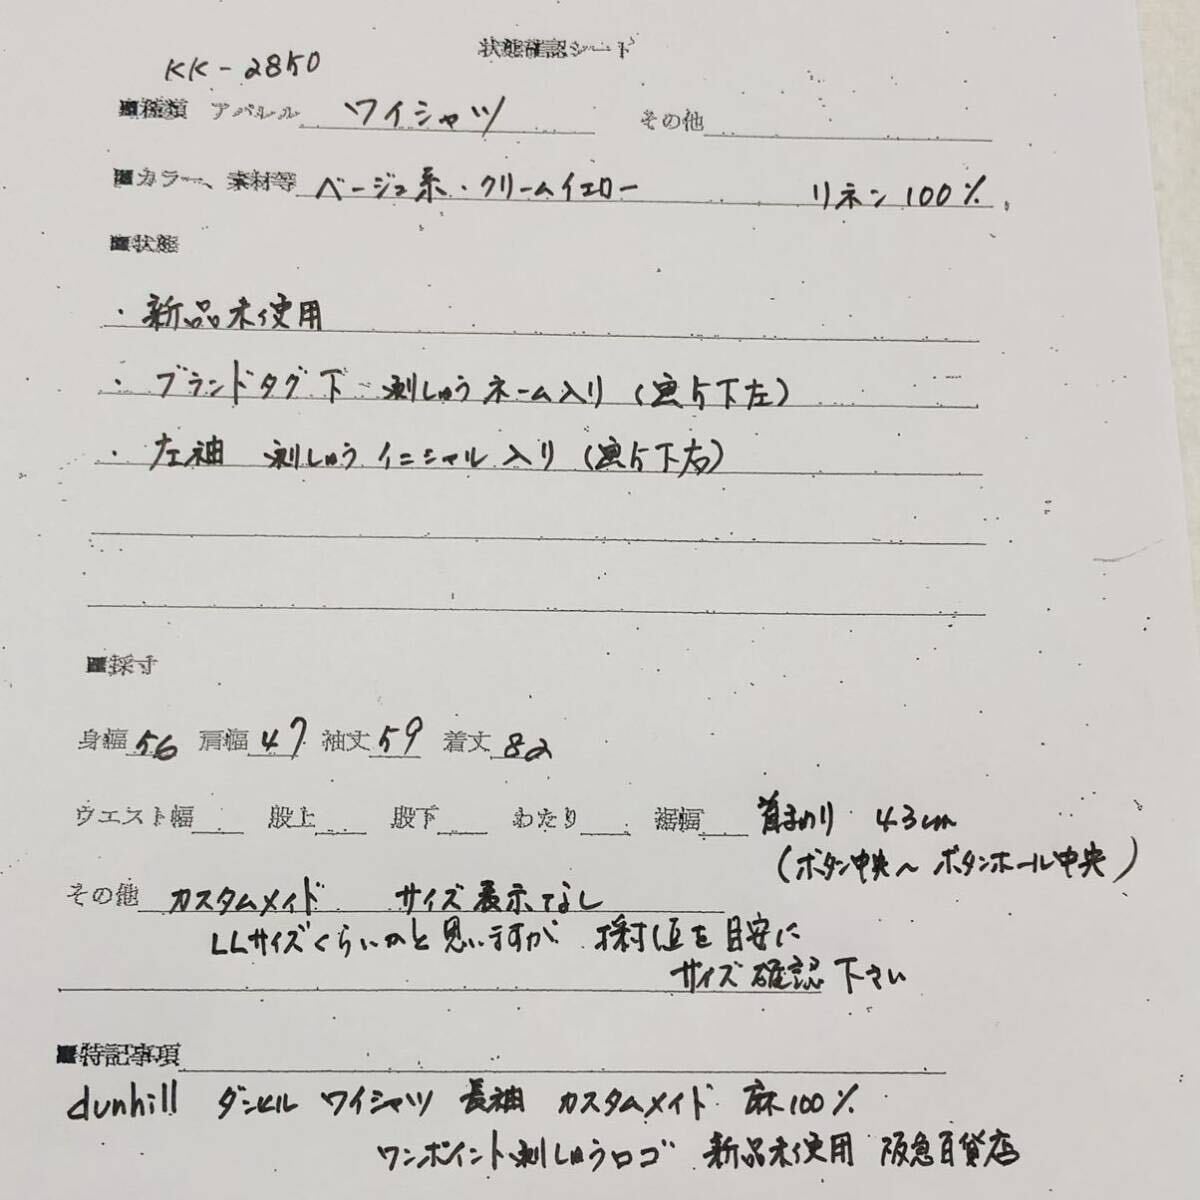 状態確認シート
KK-2850
■種類 アパレル ワイシャツ その他
■カラー、素材等 ベージュ系・クリームイエロー リネン 100%
■状態
・新品未使用
・ブランドタグ下 刺しゅうネーム入り (画像下左)
・左袖 刺しゅうイニシャル入り (画像下右)
■採寸
身幅 56 肩幅 47 袖丈 59 着丈 82
ウエスト幅 股上 股下 わたり 裾幅 首まわり 43cm
(ボタン中央〜ボタンホール中央)
その他 カスタムメイド サイズ表示なし
LLサイズくらいかと思いますが 採寸値を目安に
サイズ確認下さい
■特記事項
dunhill ダンヒル ワイシャツ 長袖 カスタムメイド 麻100%
ワンポイント刺しゅうロゴ 新品未使用 阪急百貨店